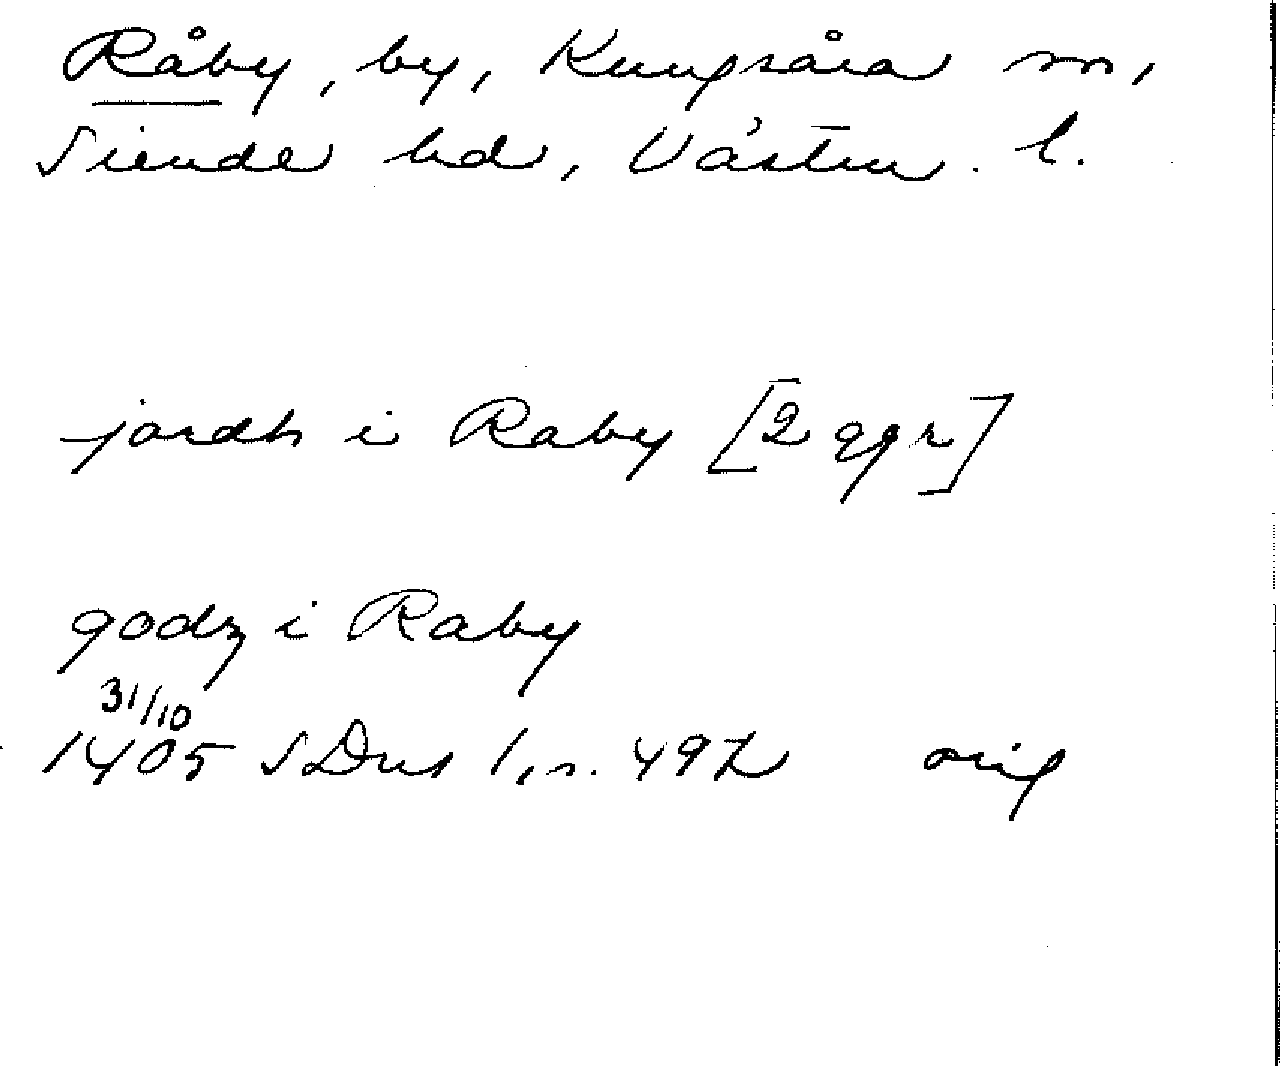 Råby, by, Kungsåra sn,
Siende hd, Västm. l.
jordh i Raby [2 ggr]
godz i Raby
31/10
1405 SDns 1, s. 492 orig